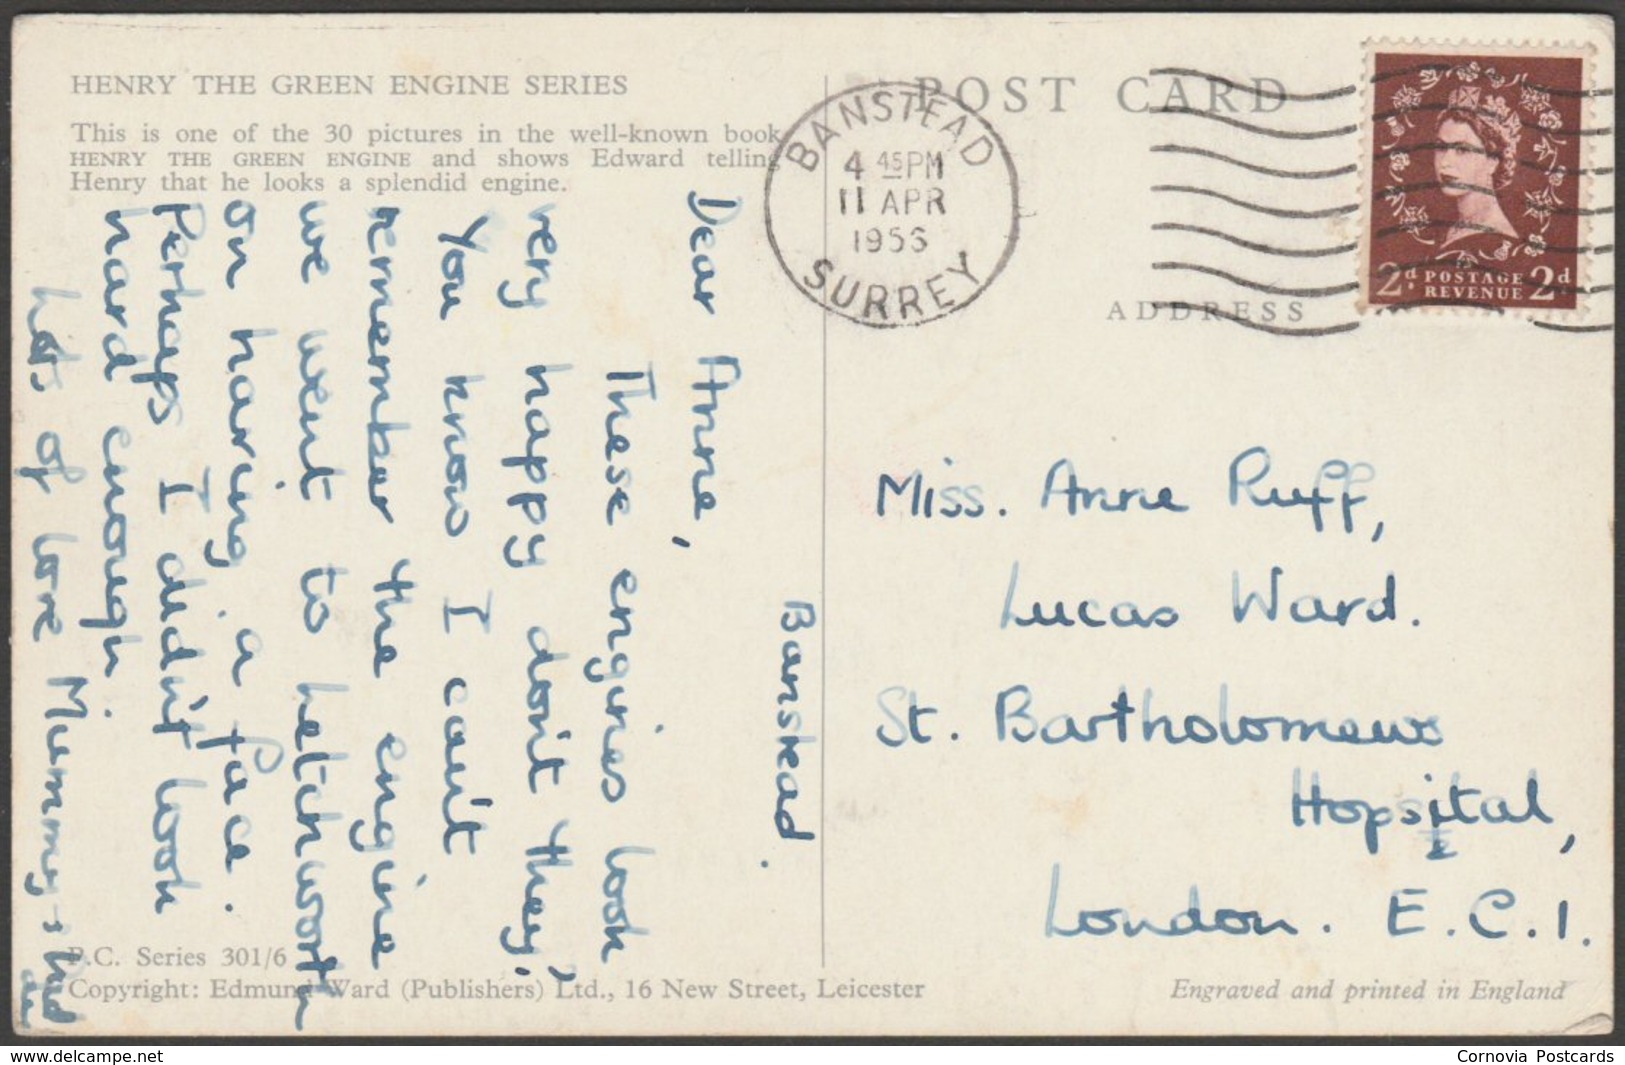 HENRY THE GREEN ENGINE SERIES
This is one of the 30 pictures in the well-known book
HENRY THE GREEN ENGINE and shows Edward telling
Henry that he looks a splendid engine.
Banstead.
Dear Anne,
These engines look
very happy don't they,
You know I can't
remember the engine
we went to hetchworth
on having a face.
Perhaps I didn't look
hard enough.
hots of love Mummy &
P.C. Series 301/6
Copyright: Edmund Ward (Publishers) Ltd., 16 New Street, Leicester
POST CARD
BANSTEAD
4 45PM
11 APR
1956
SURREY
2d POSTAGE REVENUE 2d
ADDRESS
Miss. Anne Ruff,
Lucas Ward.
St. Bartholomews
Hopsital,
London. E.C.1.
Engraved and printed in England
www.delcampe.net
Cornovia Postcards